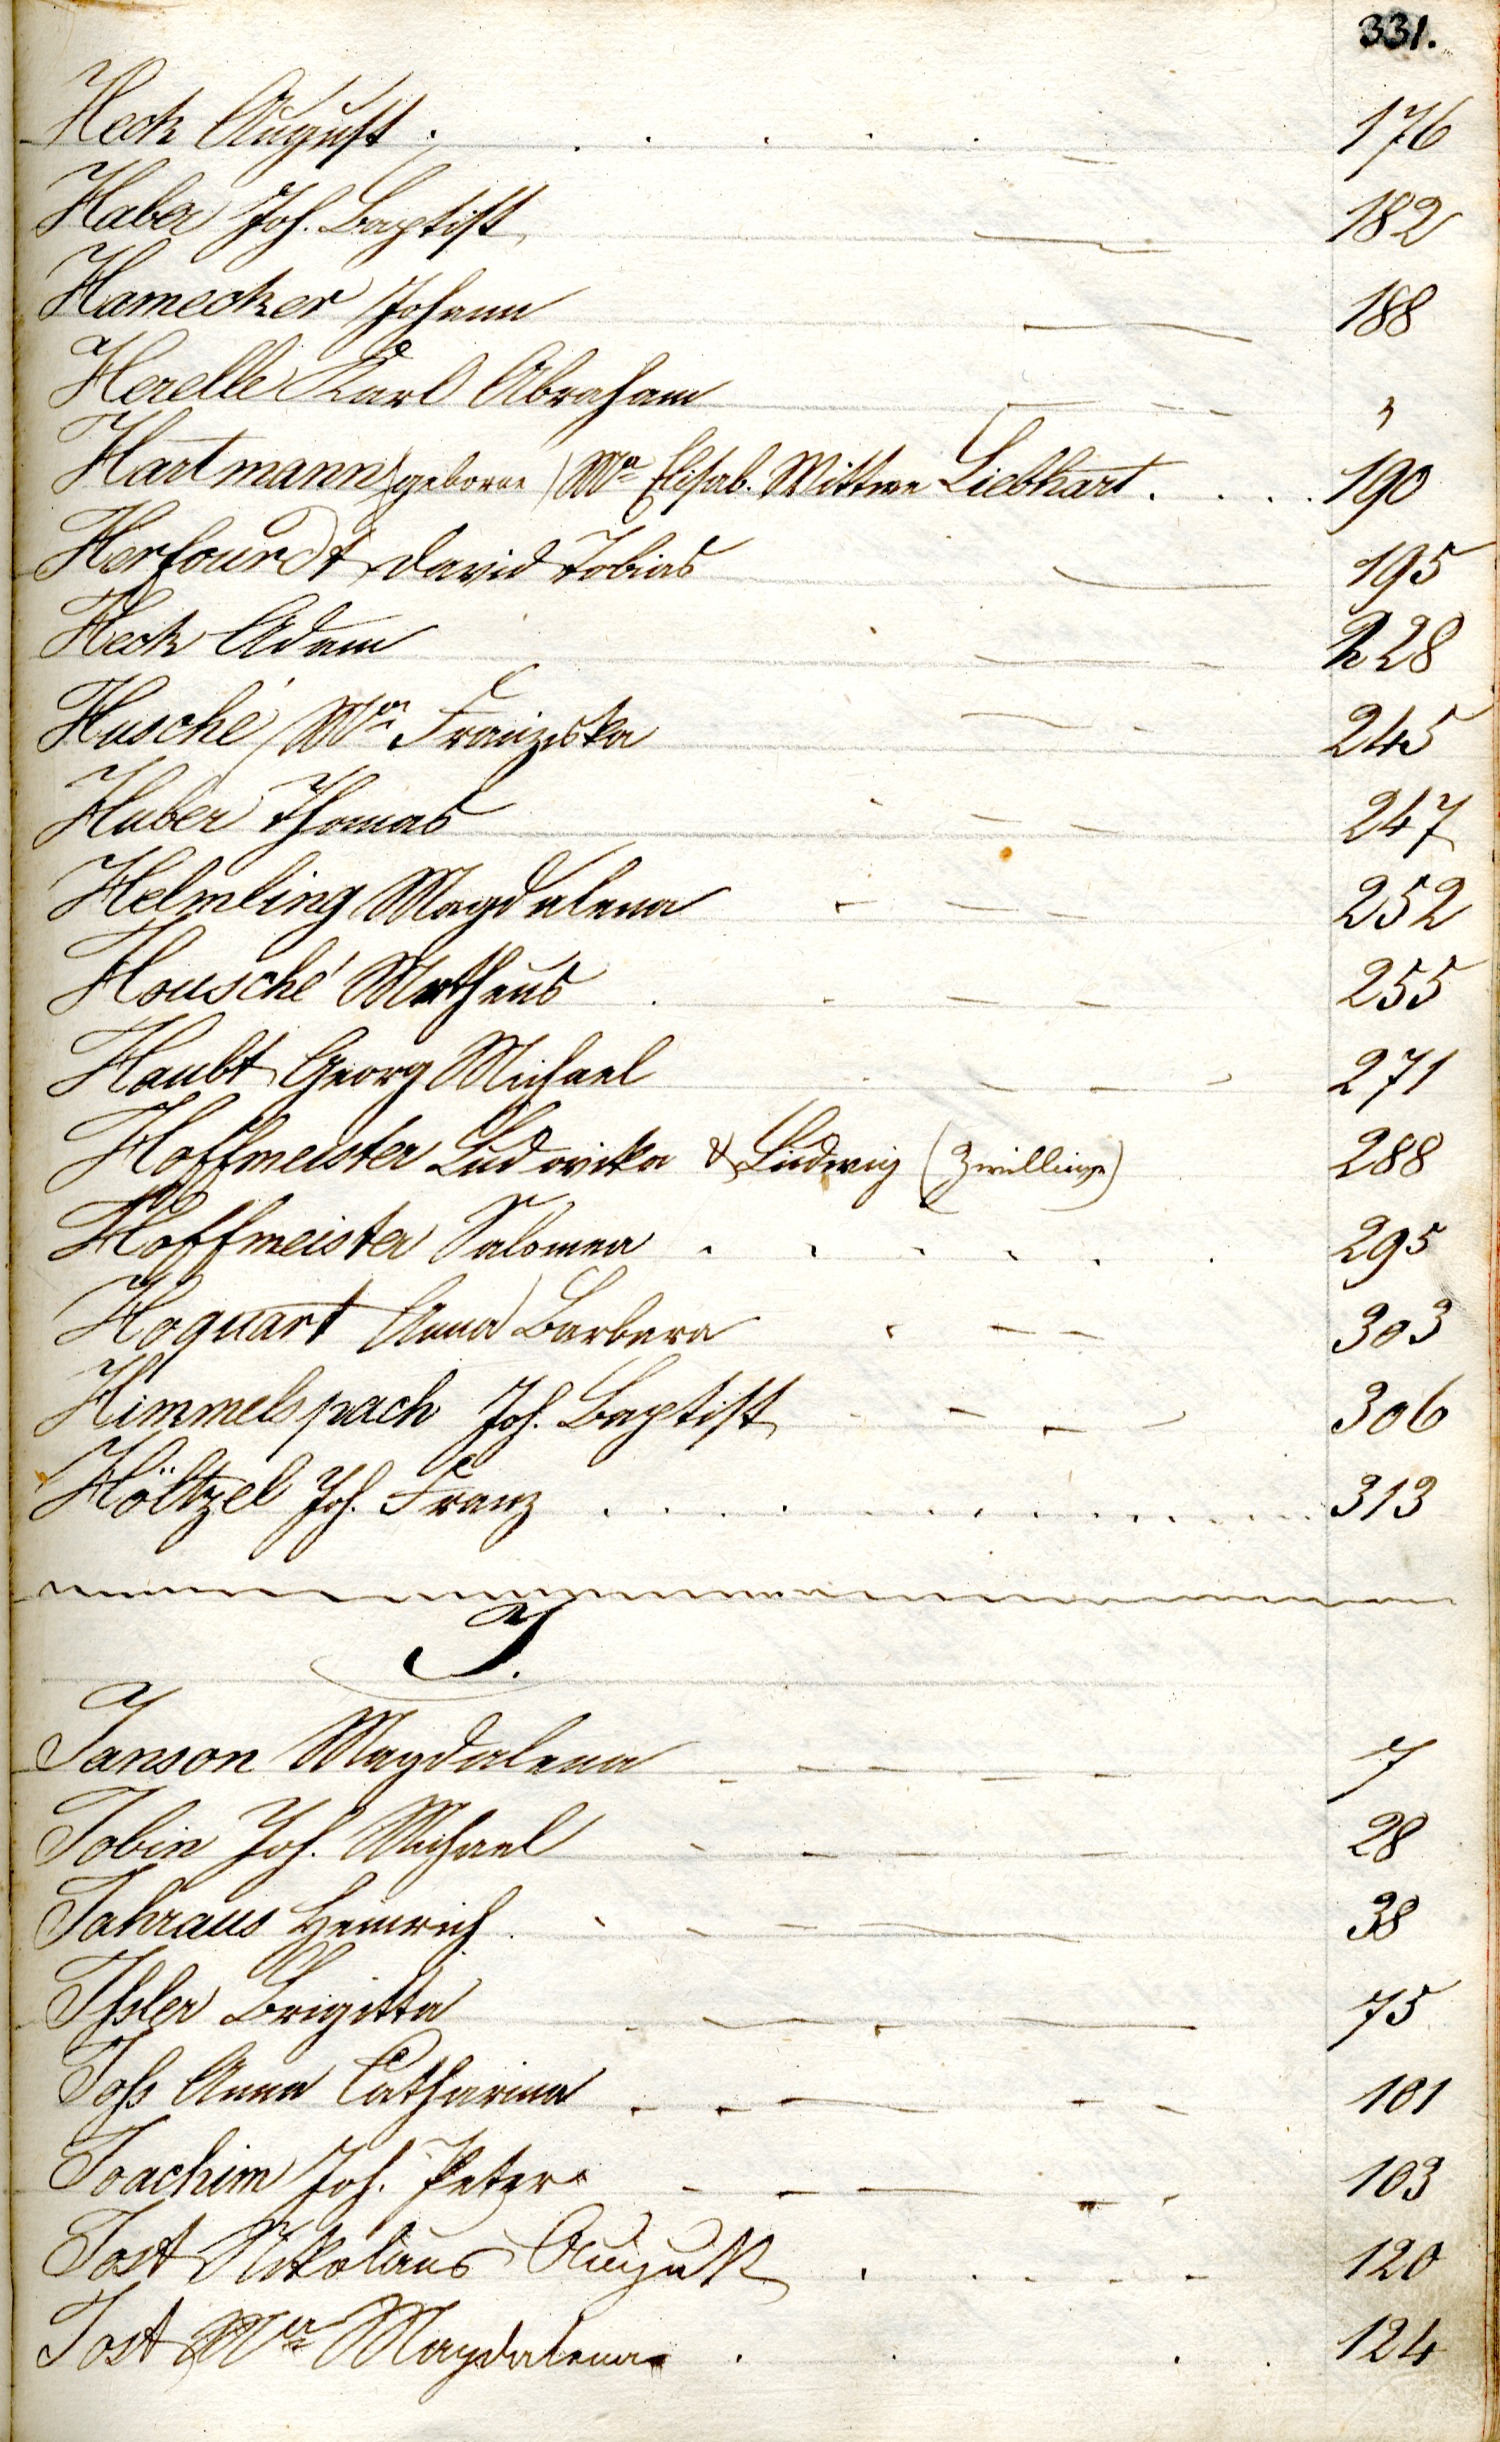 331.
Heck August . . . . . . 176
Haber Joh. Baptist 182
Hamecker Johann 188
Herelle Karl Abraham "
Hartmann geborne Ma Elisab. Wittwe Liebhart . . . . 190
Herfourdt David Tobias 195
Heck Adam 228
Husché Ma Franziska 245
Huber Thomas 247
Helmling Magdalena 252
Housché Matheus 255
Haubt Georg Michael 271
Hoffmeister Ludovika & Ludwig (Zwillinge) 288
Hoffmeister Salomea . . . . . . 295
Hoquart Anna Barbara 303
Himmelspach Joh. Baptist 306
Höltzel Joh. Franz . . . . . . . . . . 313
J.
Janson Magdalena 7
Jobin Joh. Michael 28
Jahraus Heinrich 38
Ihsler Brigitta 75
Joß Anna Catharina 101
Joachim Joh. Peter 103
Jost Nikolaus August . . . . . 120
Jost Ma Magdalena . . . . 124